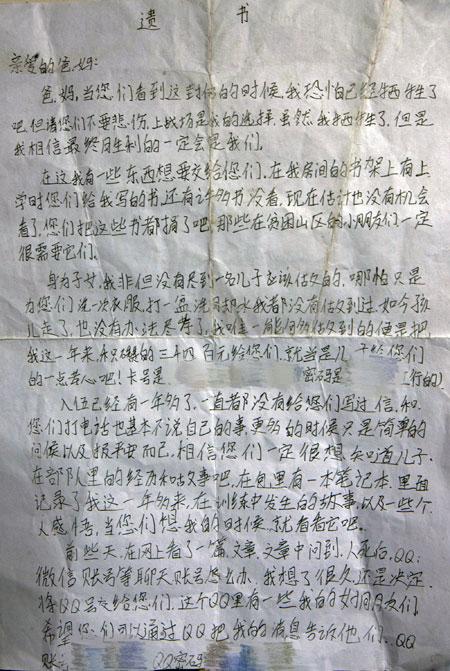 遗 书
亲爱的爸,妈:
爸,妈,当您们看到这封信的时候,我恐怕已经牺牲了
吧,但请您们不要悲伤,上战场是我的选择,虽然,我牺牲了,但是
我相信最终胜利的一定会是我们。
在这我有一些东西想要交给您们,在我房间的书架上有上
学时您们给我写的书,还有许多书没看,现在估计也没有机会
看了,您们把这些书都捐了吧,那些在贫困山区的小朋友们一定
很需要它们。
身为子女,我非但没有尽到一名儿子应该做的,哪怕只是
为您们洗一次衣服,打一盆洗脚水我都没有做到过,如今孩
儿走了,也没有办法尽孝了,我唯一能够做到的便是把
我这一年来,积攒的三千四百元给您们,就当是儿子给您们
的一点苦心吧!卡号是 密码是 (行的)
入伍已经有一年多了,一直都没有给您们写过信,和
您们打电话也基本不说自己的事,更多的时候只是简单的
问候以及报平安而已,相信您们一定很想知道儿子
在部队里的经历和故事吧,在包里有一本笔记本,里面
记录了我这一年多来,在训练中发生的故事,以及一些个
人感悟,当您们想我的时候,就看看它吧。
前些天,在网上看了一篇文章,文章中问到,人死后,QQ,
微信账号等聊天账号怎么办,我想了很久,还是决定,
将QQ号交给您们,这个QQ里有一些我的好朋友们,
希望您们可以通过QQ把我的消息告诉他们,QQ
账 QQ密码